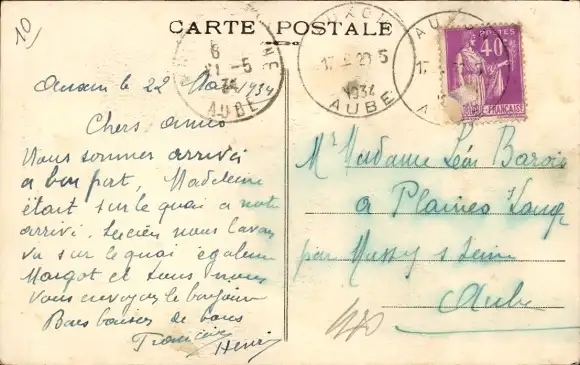 10
CARTE POSTALE
AUXON
17 - 5
1934
AUBE
6
21 - 5
34
AUBE
POSTES
40
FRANÇAISE
le 22 Mai 1934
Chers amis
Nous sommes arrivés
a bon port, Madeleine
était sur le quai a notre
arrivé. Lucien nous l'avons
vu sur le quai également
Margot et nous
Vous envoyons le bonjour
Bons baisers de tous
Henri
Mr Madame Léon Barois
a Plaines
par Mussy s Seine
Aube